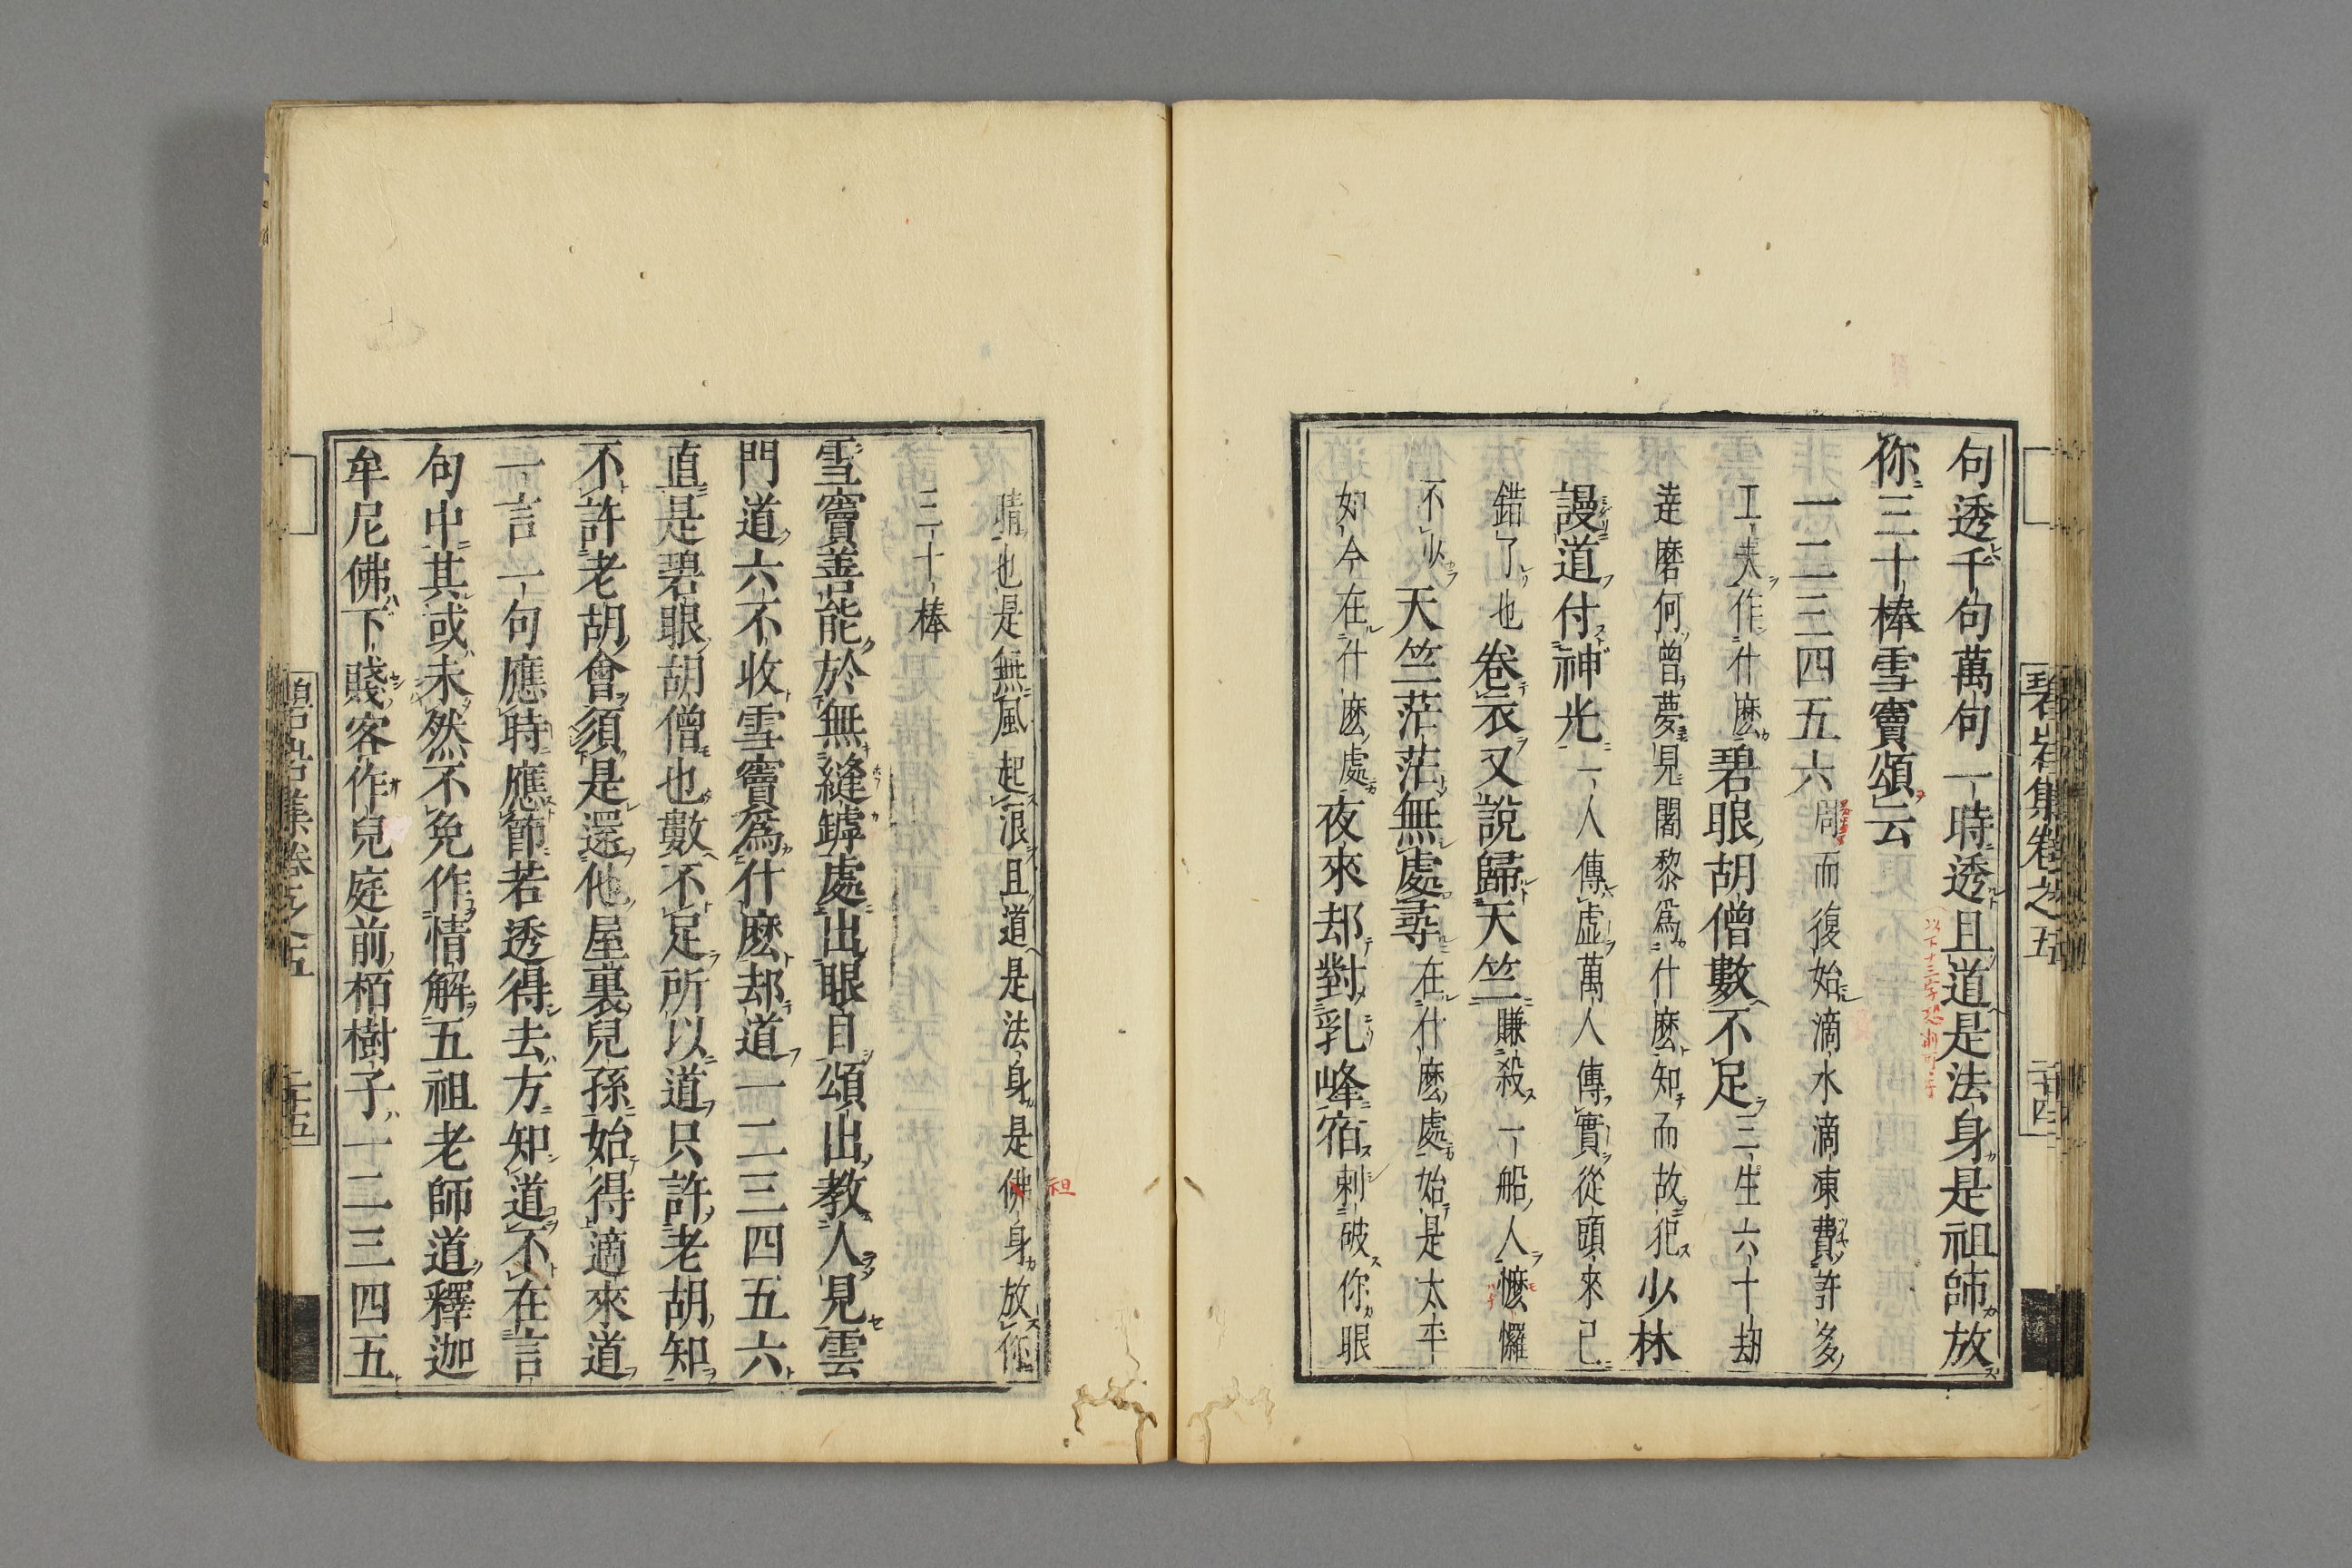 碧岩集卷之五
二十四
句透千句萬句一時透且道是法身是祖師放
你三十棒雪竇頌云
一二三四五六周而復始滴水滴凍費許多
工夫作什麽碧眼胡僧數不足三生六十劫
達磨何曾夢見闍黎爲什麽知而故犯少林
謾道付神光一人傳虛萬人傳實從頭來已
錯了也卷衣又說歸天竺賺殺一船人懡㦬
不少天竺茫茫無處尋在什麽處始是太平
如今在什麽處夜來却對乳峰宿刺破你眼
睛也是無風起浪且道是法身是佛身放你
祖
三十棒
雪竇善能於無縫罅處出眼目頌出教人見雲
門道六不收雪竇爲什麽却道一二三四五六
直是碧眼胡僧也數不足所以道只許老胡知
不許老胡會須是還他屋裏兒孫始得適來道
一言一句應時應節若透得去方知道不在言
句中其或未然不免作情解五祖老師道釋迦
牟尼佛下賤客作兒庭前栢樹子一二三四五
碧岩集卷之五
二十五